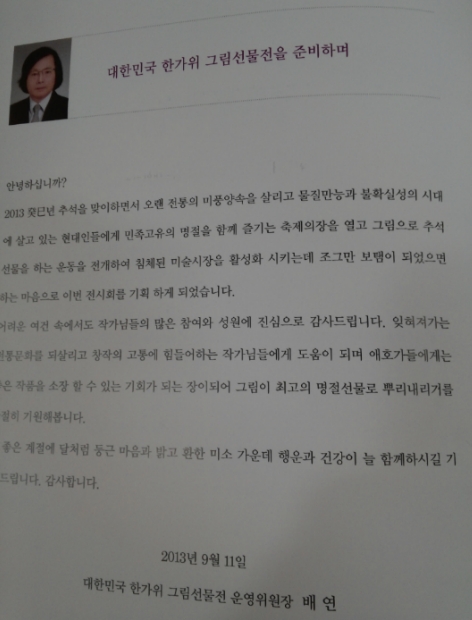 대한민국 한가위 그림선물전을 준비하며
안녕하십니까?
2013 癸巳년 추석을 맞이하면서 오랜 전통의 미풍양속을 살리고 물질만능과 불확실성의 시대
에 살고 있는 현대인들에게 민족고유의 명절을 함께 즐기는 축제의장을 열고 그림으로 추석
선물을 하는 운동을 전개하여 침체된 미술시장을 활성화 시키는데 조그만 보탬이 되었으면
하는 마음으로 이번 전시회를 기획 하게 되었습니다.
어려운 여건 속에서도 작가님들의 많은 참여와 성원에 진심으로 감사드립니다. 잊혀져가는
전통문화를 되살리고 창작의 고통에 힘들어하는 작가님들에게 도움이 되며 애호가들에게는
작품을 소장 할 수 있는 기회가 되는 장이되어 그림이 최고의 명절선물로 뿌리내리거를
기원해봅니다.
좋은 계절에 달처럼 둥근 마음과 밝고 환한 미소 가운데 행운과 건강이 늘 함께하시길 기
드립니다. 감사합니다.
2013년 9월 11일
대한민국 한가위 그림선물전 운영위원장 배 연